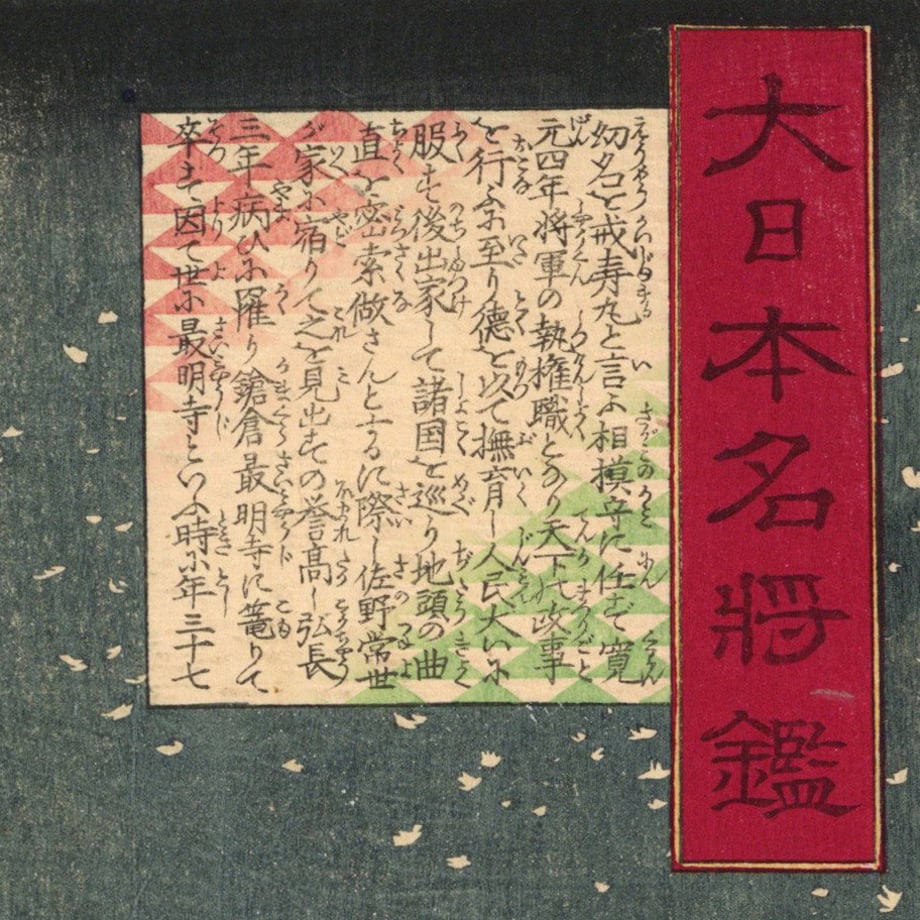 大日本名將鑑
幼名を戒寿丸と言ふ相模守に任ず寛
元四年将軍の執権職となり天下の政事
を行ふに至り徳を以て撫育し人民大いに
服す後出家して諸国を巡り地頭の曲
直を密索做さんとするに際し佐野常世
が家に宿りて之を見出すの誉高し弘長
三年病ひに罹り鎗倉最明寺に篭りて
卒す因て世に最明寺といふ時に年三十七